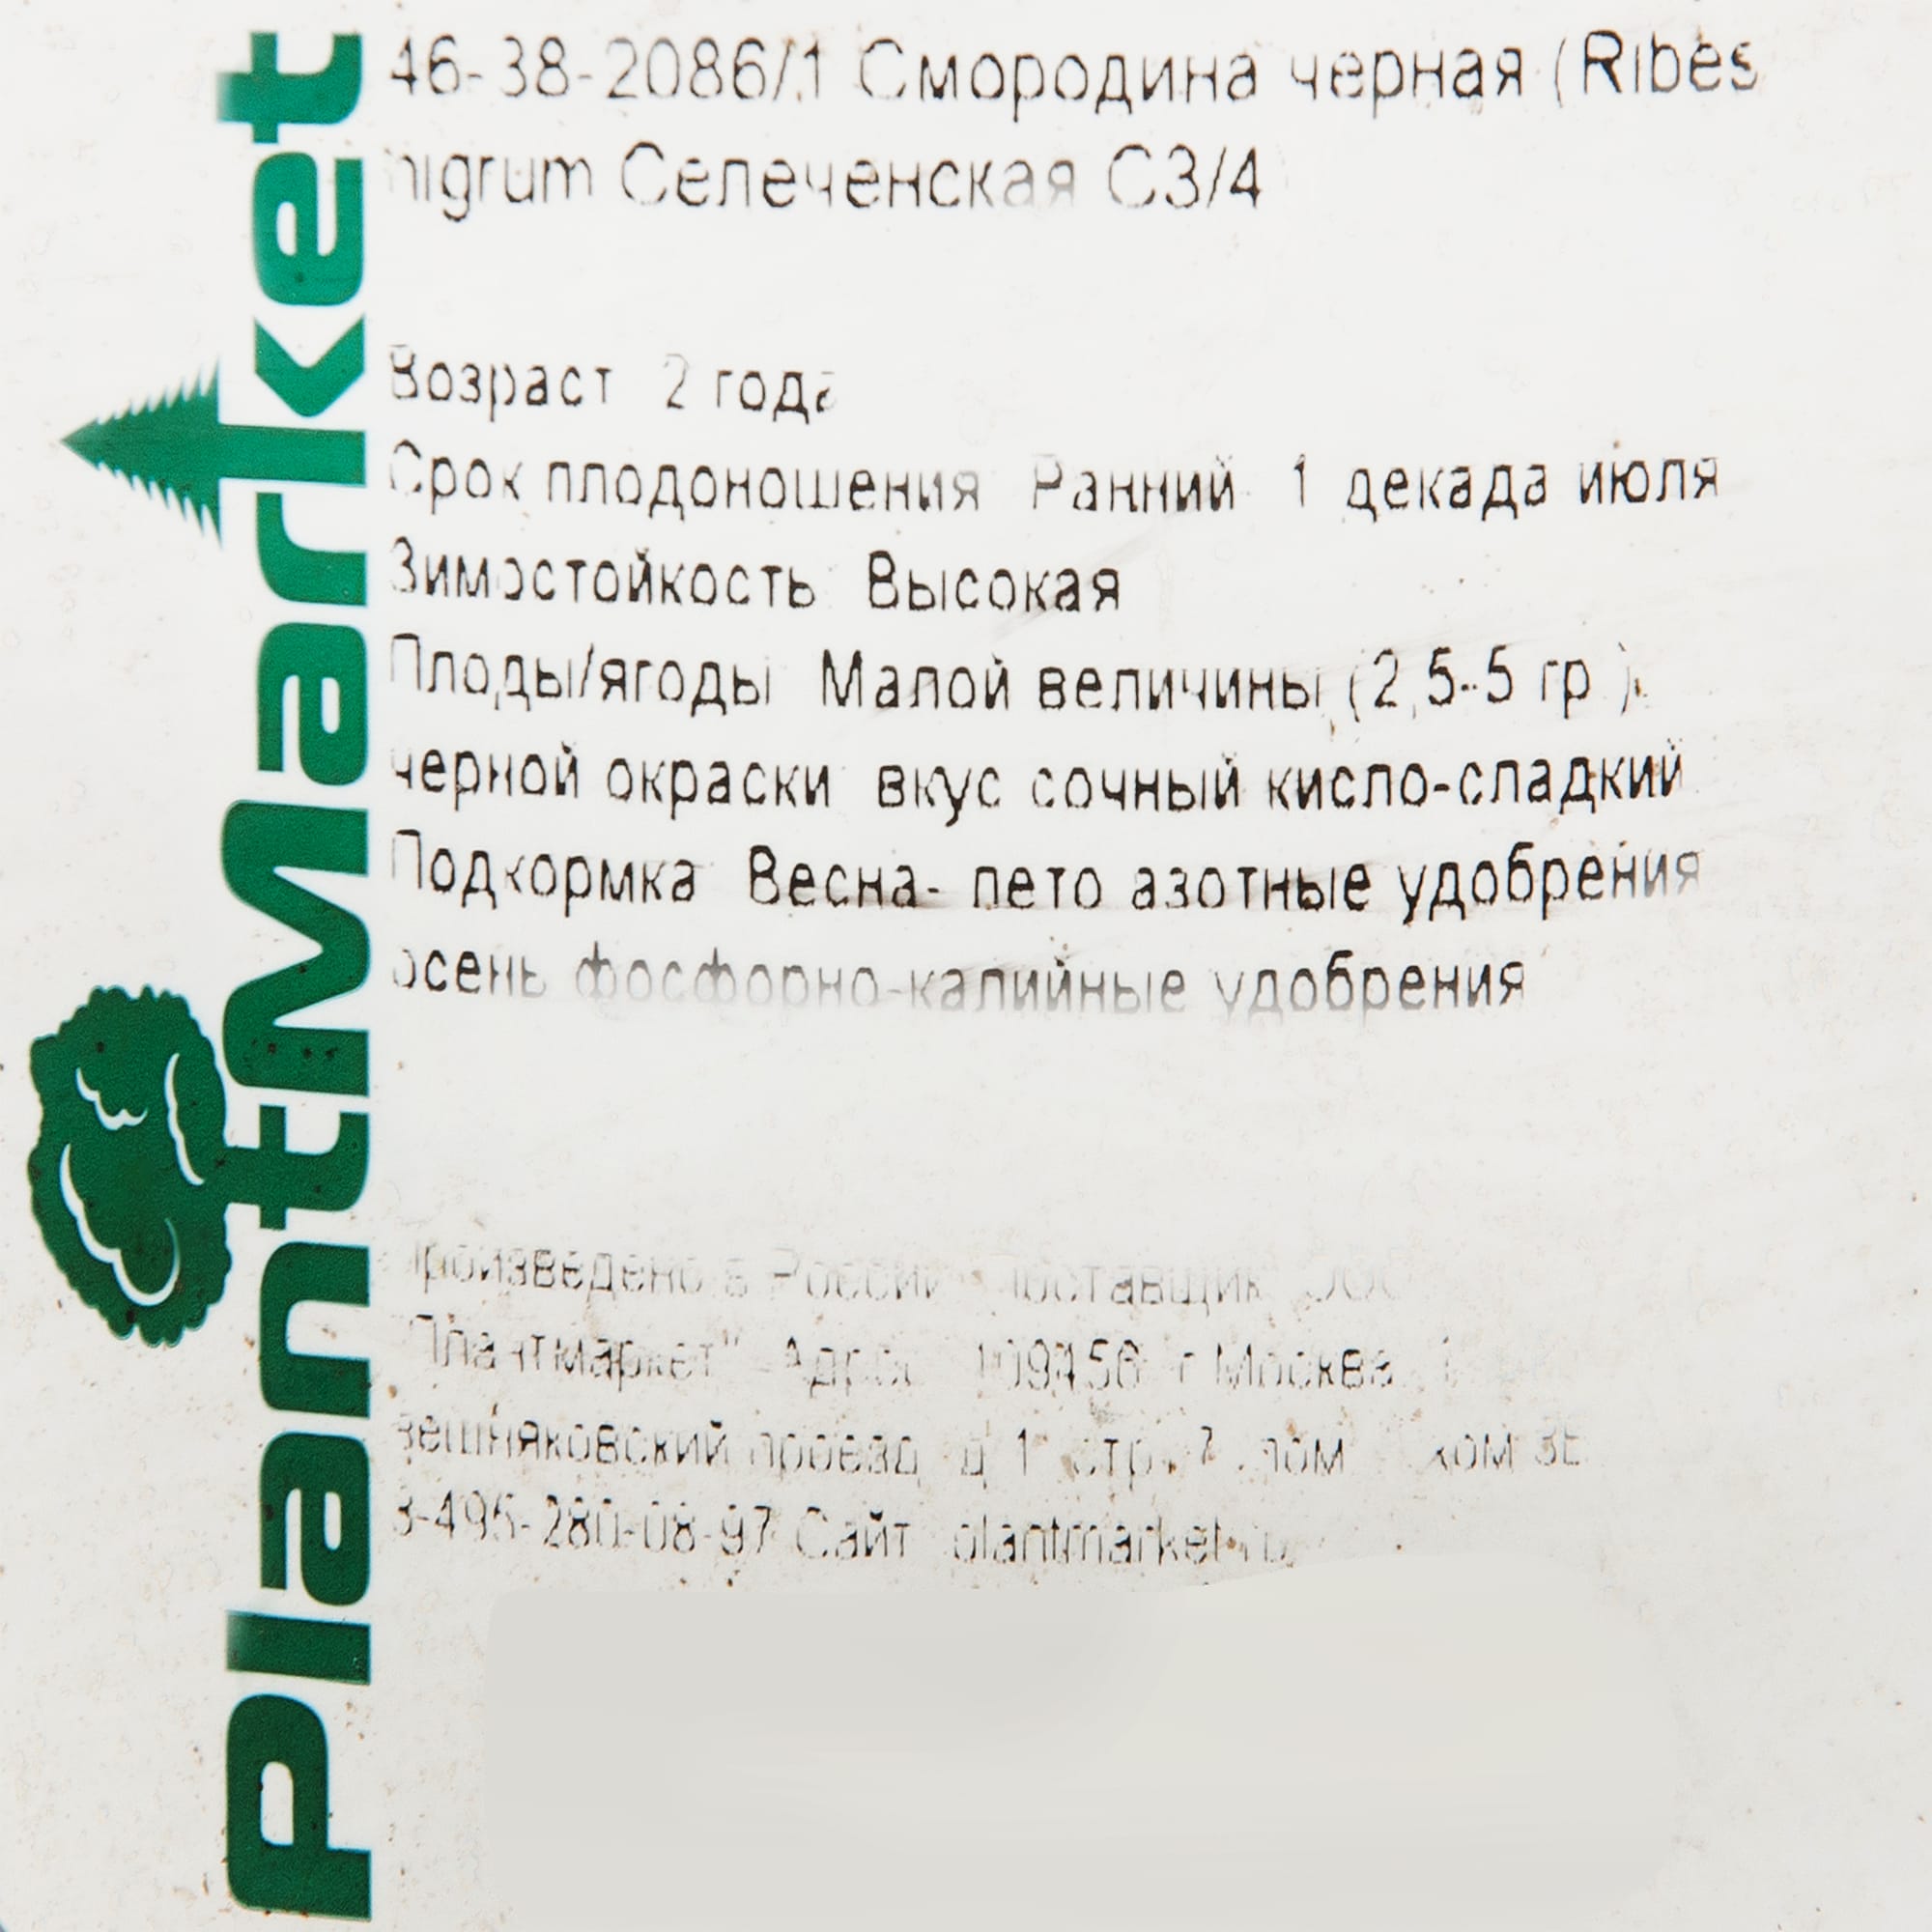 PlantMarket
46-38-2086/1 Смородина черная (Ribes
nigrum Селеченская С3/4
Возраст 2 года
Срок плодоношения Ранний 1 декада июля
Зимостойкость Высокая
Плоды/ягоды Малой величины (2,5-5 гр.),
черной окраски вкус сочный кисло-сладкий
Подкормка Весна- лето азотные удобрения
осень фосфорно-калийные удобрения
Произведено в России Поставщик ООО
"Плантмаркет" Адрес г Москва
вешняковский проезд д 1 стр. пом ком
8-495-280-08-97 Сайт plantmarket.ru